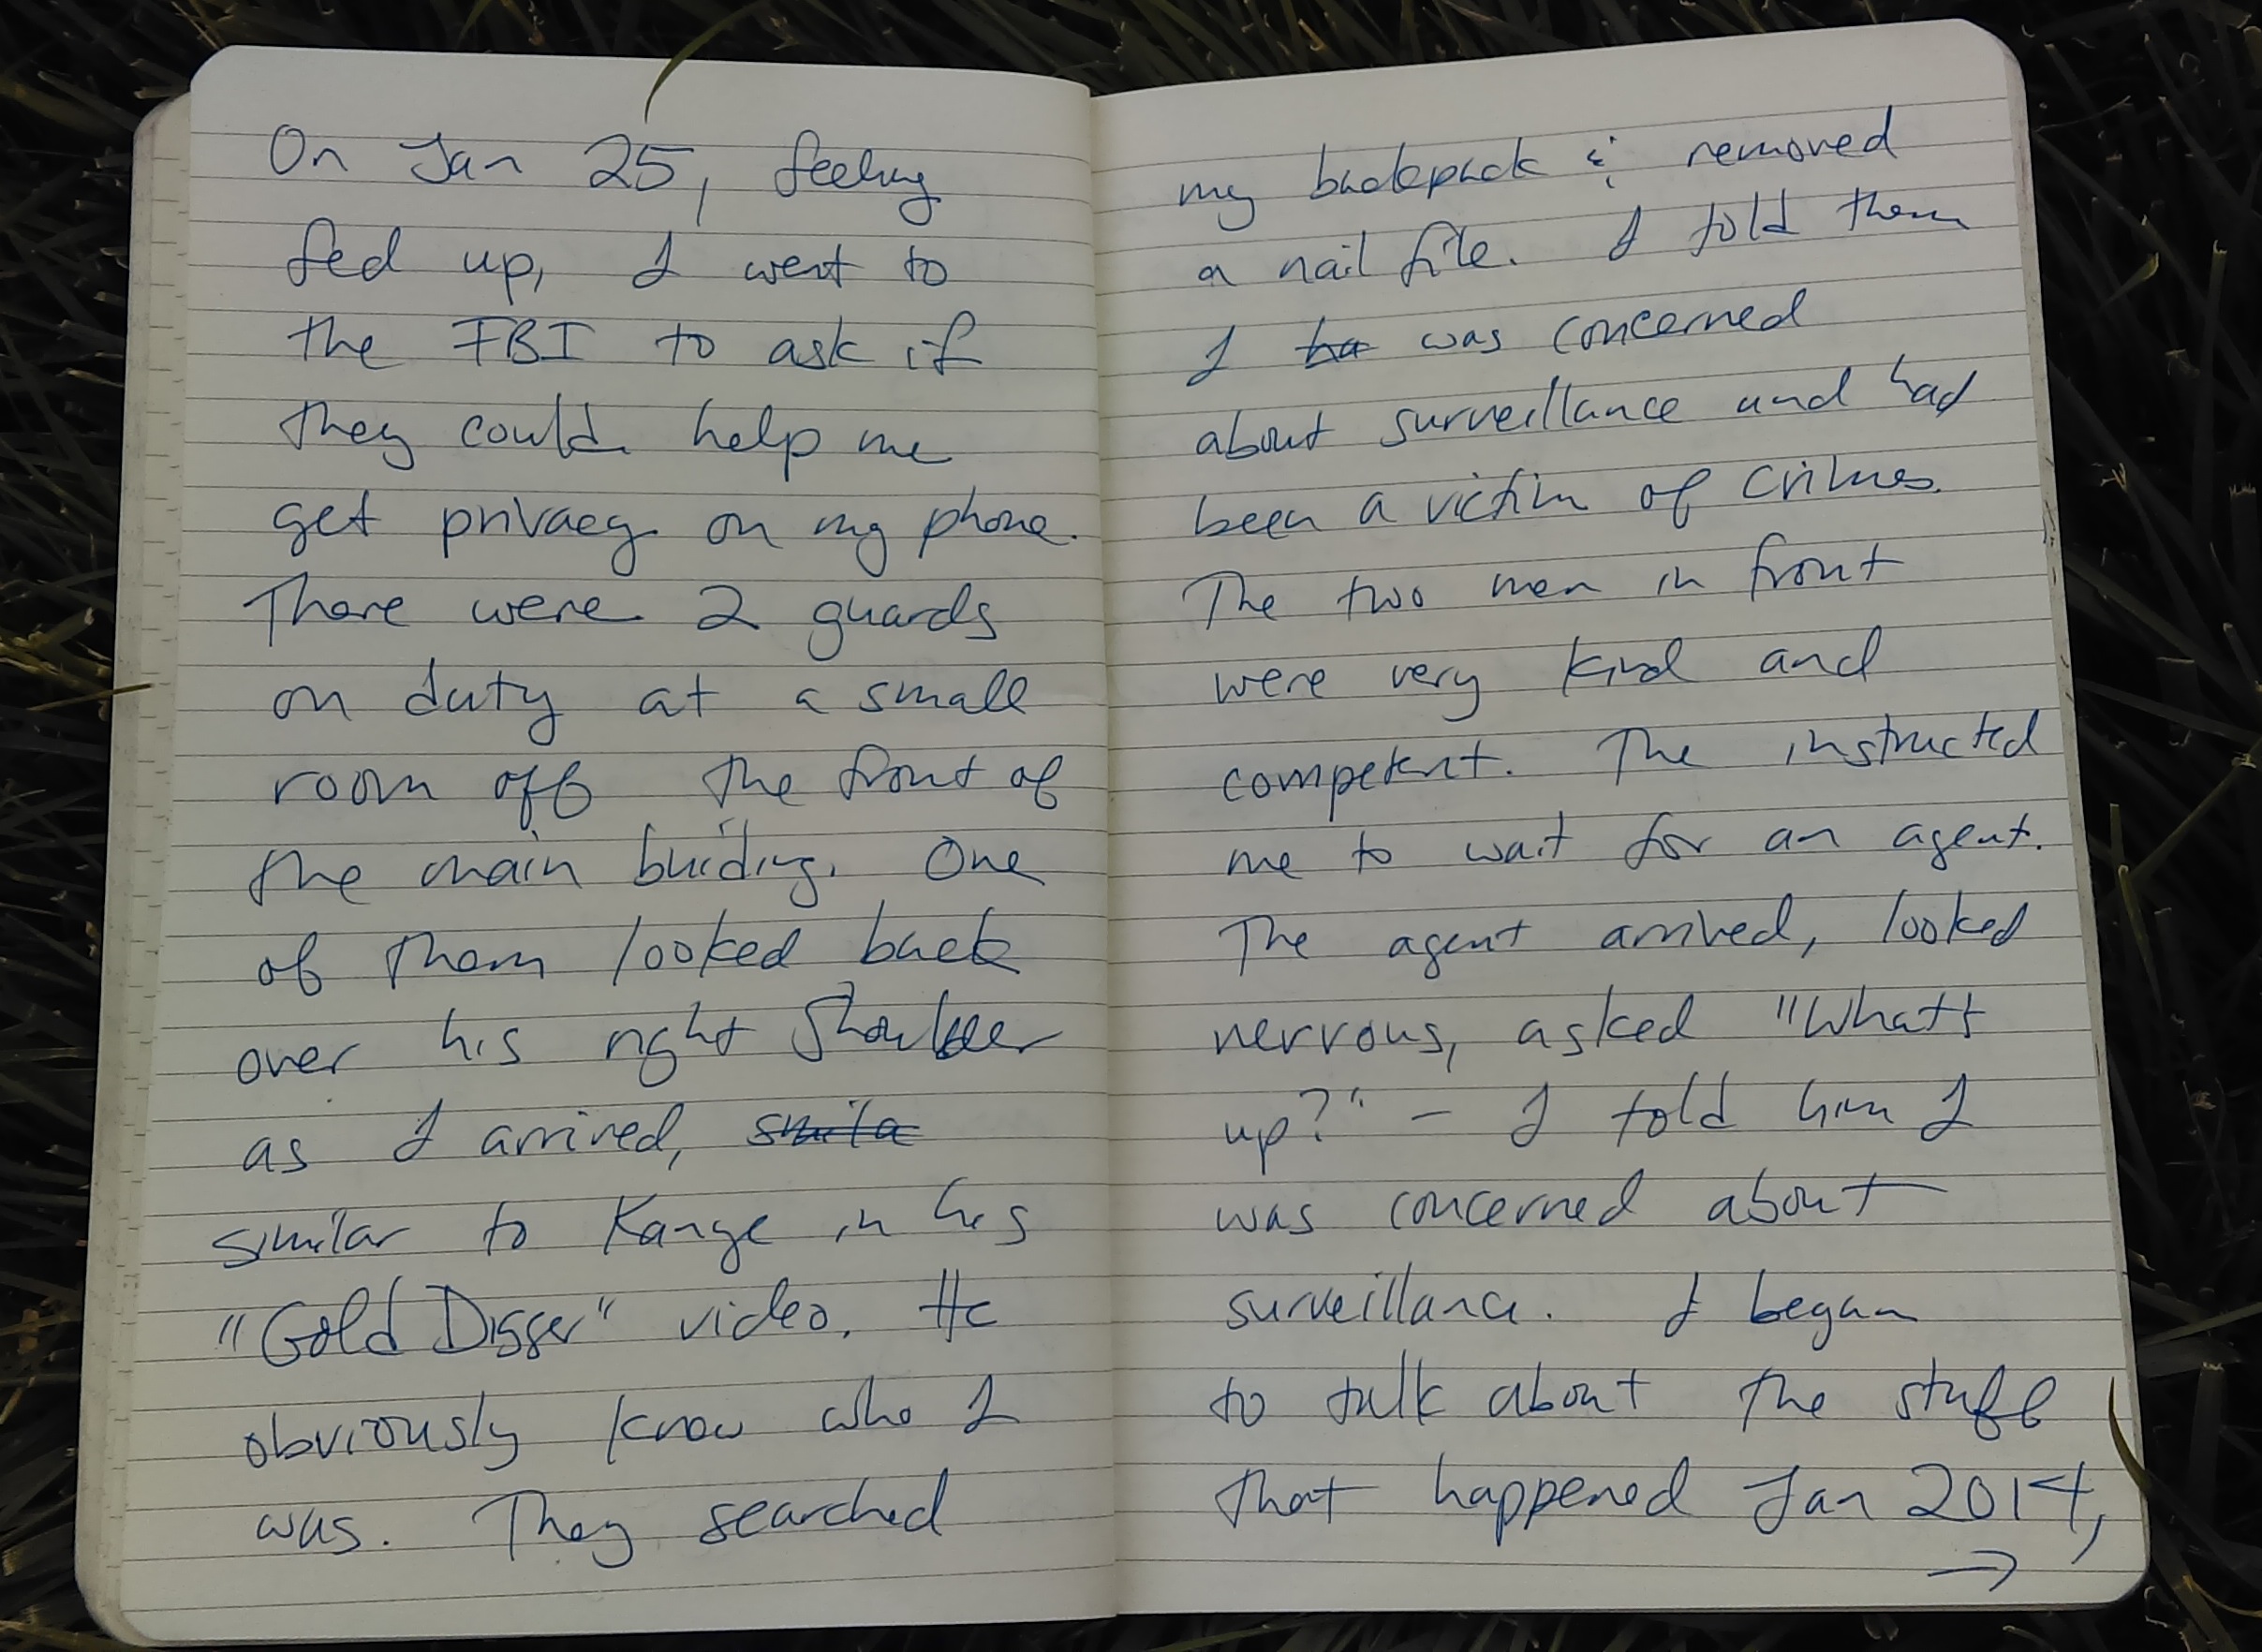 On Jan 25, feeling
fed up, I went to
the FBI to ask if
they could help me
get privacy on my phone.
There were 2 guards
on duty at a small
room off the front of
the main buiding. One
of them looked back
over his right shoulder
as I arrived,
similar to Kanye in his
"Gold Digger" video. He
obviously know who I
was. They searched
my backpack & removed
a nail file. I told them
I ha was concerned
about surveillance and had
been a victim of crimes.
The two men in front
were very kind and
competent. The instructed
me to wait for an agent.
The agent arrived, looked
nervous, asked "What's
up?" – I told him I
was concerned about
surveillance. I began
to talk about the stuff
that happened Jan 2014,
→